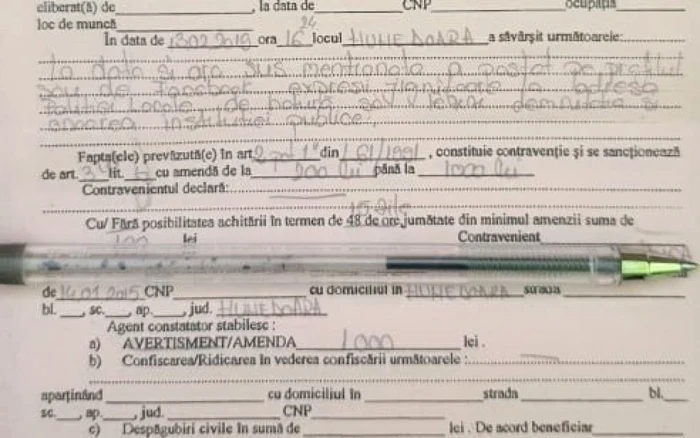 eliberat(ă) de____________, la data de____________CNP____________ocupația
loc de muncă
24
În data de 13.02.2019 ora 16 locul HUNEDOARA a săvârșit următoarele:
La data și ora sus menționată a postat pe profilul
său de facebook expresii jignitoare la adresa
Poliției Locale, de natură să-i lezeze demnitatea și
onoarea instituției publice.
Fapta(ele) prevăzută(e) în art 2 pct 1 din L 61/1991, constituie contravenție și se sancționează
de art. 3 lit. b cu amendă de la 200 lei până la 1000 lei
Contravenientul declară:
15 zile
Cu/ Fără posibilitatea achitării în termen de 48 de ore jumătate din minimul amenzii suma de
100 lei Contravenient
de 14.01.2015 CNP____________cu domiciliul în HUNEDOARA strada
bl.___, sc.___, ap.___, jud. HUNEDOARA
Agent constatator stabilesc :
a) AVERTISMENT/AMENDA 1000 lei .
b) Confiscarea/Ridicarea în vederea confiscării următoarele :
aparținând____________cu domiciliul în____________strada____________bl.___
sc.___, ap.___, jud.____________CNP
c) Despăgubiri civile în sumă de____________lei . De acord beneficiar